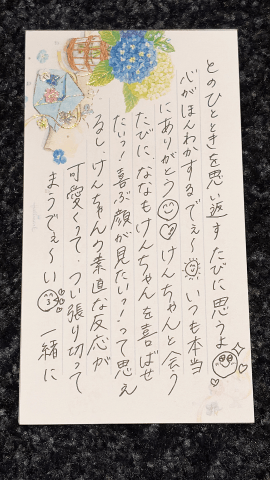 とのひとときを思い返すたびに思うよ
心がほんわかするでぇ〜 いつも本当
にありがとう けんちゃんと会う
たびに、ななもけんちゃんを喜ばせ
たいっ！喜ぶ顔が見たいっ！って思え
るし、けんちゃんの素直な反応が
可愛くって、つい張り切って
まうでぇ〜い 一緒に